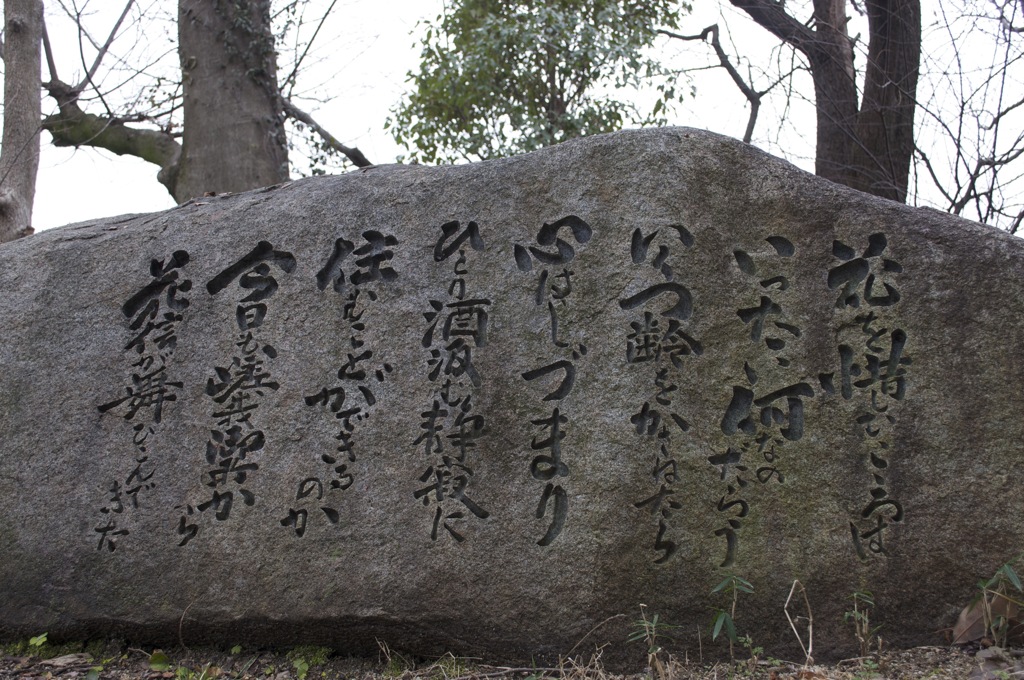 花を惜しむこころは
いったい何なのだろう
いくつ齢をかさねたら
心はしづまり
ひとり酒汲む静寂に
住むことができるのか
今日も嵯峨の奥から
花信が舞ひこんできた